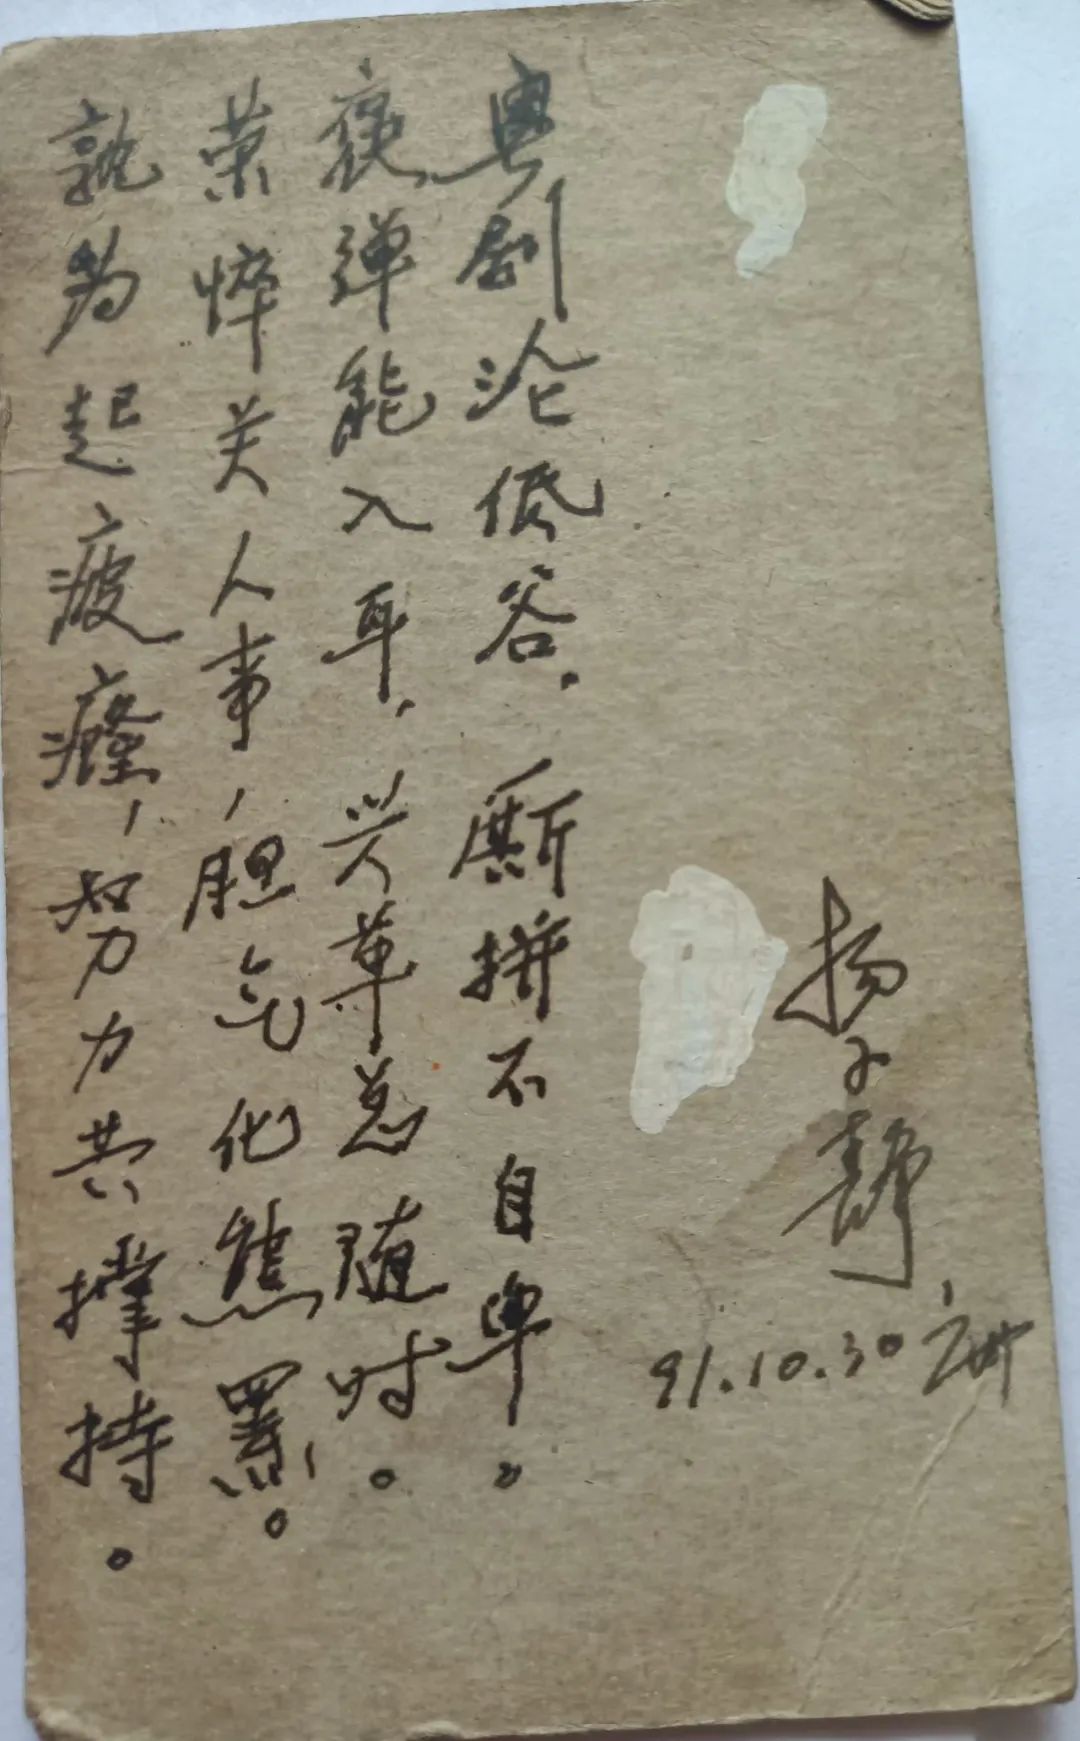 杨子静
91.10.30 广州
粤剧沦低谷，厮拼不自卑。
褒弹能入耳，兴革总随时。
荣悴关人事，胆气化熊罴。
孰为起疲癃，努力共撑持。